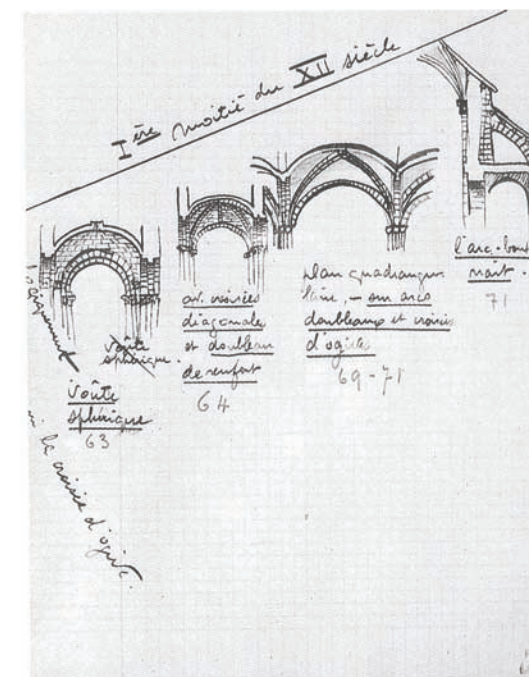 Ière moitié du XII siècle
voûte
sphérique.
Voûte
sphérique
63
av. croisées
diagonales
et doubleau
de renfort
64
plan quadrangu
laire, - sur arcs
doubleaux et croisée
d'ogive
69-71
l'arc-bou
naît.
71
la croisée d'ogive.